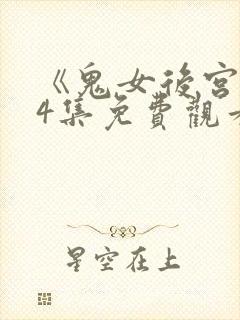 《鬼女後宮
4集免費觀
星空在上